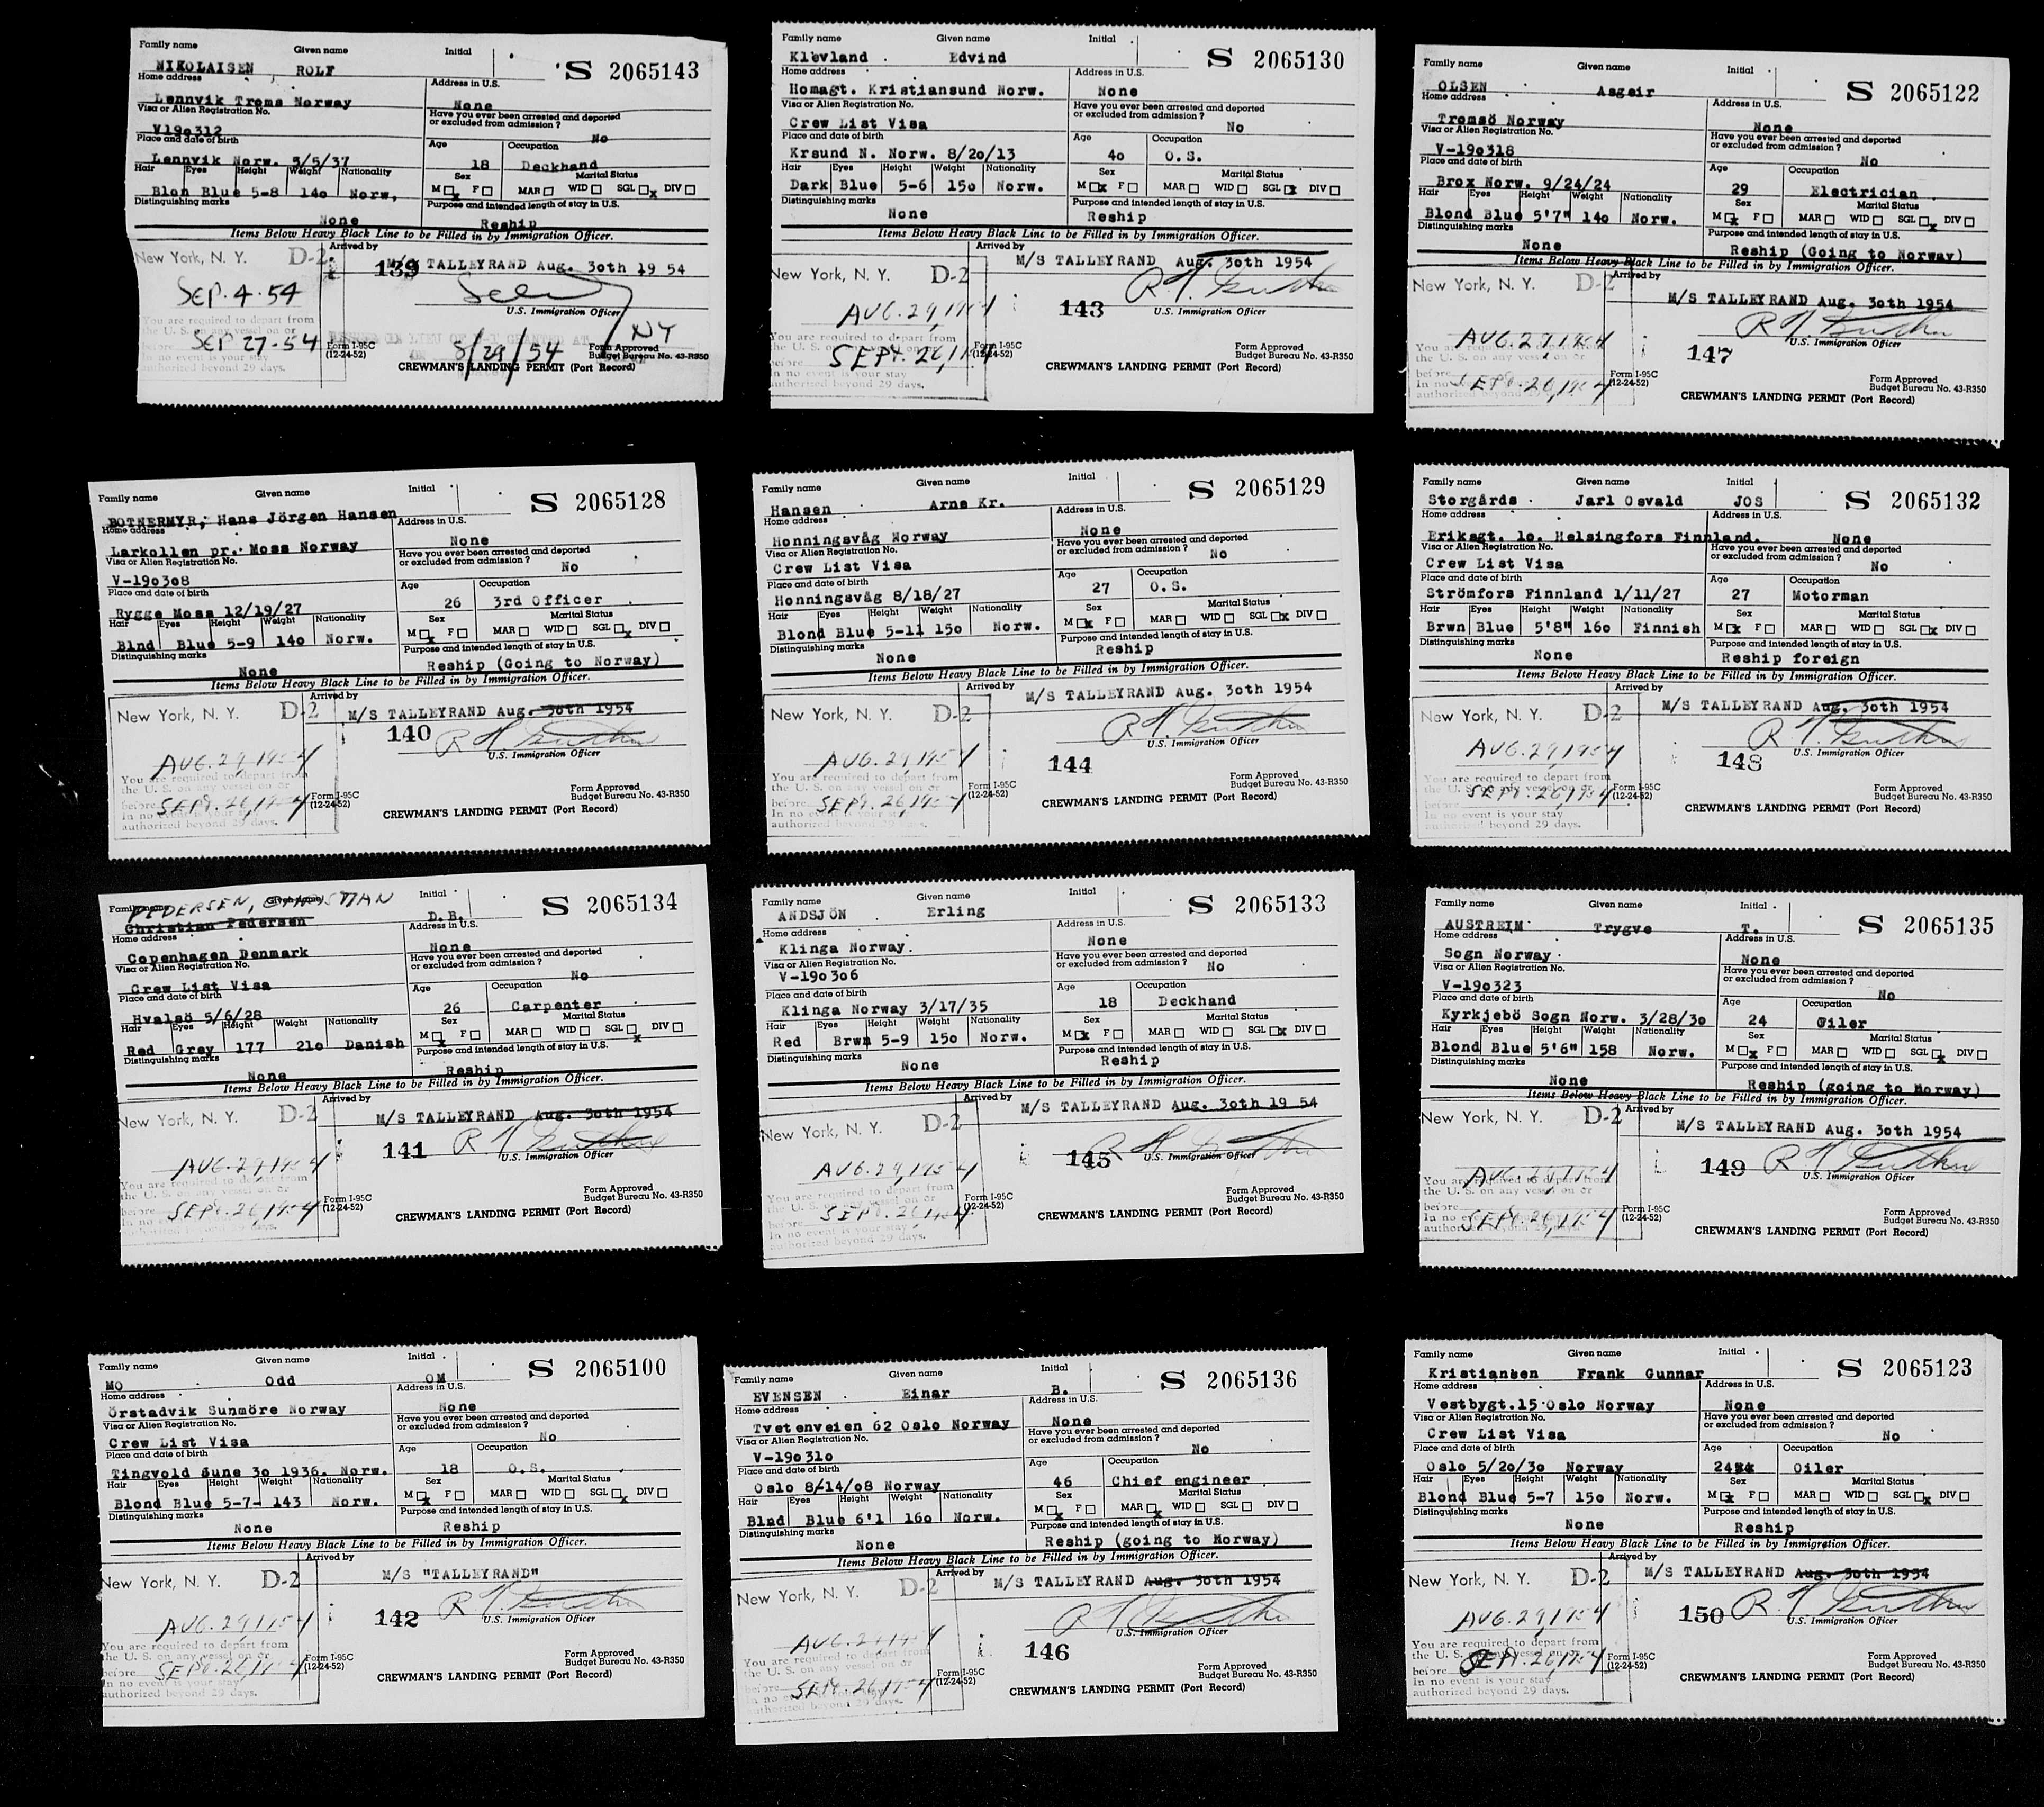 Family name Given name Initial
NIKOLAISEN , ROLF S 2065143
Home address Address in U.S.
Lennvik Troms Norway None
Visa or Alien Registration No. Have you ever been arrested and deported
or excluded from admission ?
V190312 No
Place and date of birth Age Occupation
Lennvik Norw. 3/5/37 18 Deckhand
Hair Eyes Height Weight Nationality Sex Marital Status
Blon Blue 5-8 140 Norw, M x F MAR WID SGL x DIV
Distinguishing marks Purpose and intended length of stay in U.S.
None Reship
Items Below Heavy Black Line to be Filled in by Immigration Officer.
Arrived by
New York, N. Y. D-2 139 M/S TALLEYRAND Aug. 30th 19 54
SEP. 4. 54
U.S. Immigration Officer
You are required to depart from
the U. S. on any vessel on or
before SEP 27-54 8/29/54 NY
In no event is your stay
authorized beyond 29 days.
Form I-95C
(12-24-52)
Form Approved
Budget Bureau No. 43-R350
CREWMAN'S LANDING PERMIT (Port Record)
Family name Given name Initial
Klevland . Edvind S 2065130
Home address Address in U.S.
Homagt. Kristiansund Norw. None
Visa or Alien Registration No. Have you ever been arrested and deported
or excluded from admission ?
Crew List Visa No
Place and date of birth Age Occupation
Krsund N. Norw. 8/20/13 40 O.S.
Hair Eyes Height Weight Nationality Sex Marital Status
Dark Blue 5-6 150 Norw. M x F MAR WID SGL x DIV
Distinguishing marks Purpose and intended length of stay in U.S.
None Reship
Items Below Heavy Black Line to be Filled in by Immigration Officer.
Arrived by
M/S TALLEYRAND Aug. 30th 1954
New York, N. Y. D-2
AUG. 29, 1954 143
U.S. Immigration Officer
You are required to depart from
the U. S. on any vessel on or
before SEPT. 26, 1954
In no event is your stay
authorized beyond 29 days.
Form I-95C
(12-24-52)
Form Approved
Budget Bureau No. 43-R350
CREWMAN'S LANDING PERMIT (Port Record)
Family name Given name Initial
OLSEN Asgeir S 2065122
Home address Address in U.S.
Tromsö Norway None
Visa or Alien Registration No. Have you ever been arrested and deported
or excluded from admission ?
V-190318 No
Place and date of birth Age Occupation
Brox Norw. 9/24/24 29 Electrician
Hair Eyes Height Weight Nationality Sex Marital Status
Blond Blue 5'7" 140 Norw. M x F MAR WID SGL x DIV
Distinguishing marks Purpose and intended length of stay in U.S.
None Reship (Going to Norway)
Items Below Heavy Black Line to be Filled in by Immigration Officer.
Arrived by
New York, N. Y. D-2
M/S TALLEYRAND Aug. 30th 1954
AUG. 29, 1954 147
U.S. Immigration Officer
the U. S. on any vessel on or
before SEPT. 26, 1954
authorized beyond 29 days.
Form I-95C
(12-24-52)
Form Approved
Budget Bureau No. 43-R350
CREWMAN'S LANDING PERMIT (Port Record)
Family name Given name Initial
BOTNERMYR, Hans Jörgen Hansen S 2065128
Home address Address in U.S.
Larkollen pr. Moss Norway None
Visa or Alien Registration No. Have you ever been arrested and deported
or excluded from admission ?
V-190308 No
Place and date of birth Age Occupation
Rygge Moss 12/19/27 26 3rd Officer
Hair Eyes Height Weight Nationality Sex Marital Status
Blnd Blue 5-9 140 Norw. M x F MAR WID SGL x DIV
Distinguishing marks Purpose and intended length of stay in U.S.
None Reship (Going to Norway)
Items Below Heavy Black Line to be Filled in by Immigration Officer.
Arrived by
New York, N. Y. D-2 M/S TALLEYRAND Aug. 30th 1954
140
AUG. 29, 1954
U.S. Immigration Officer
You are required to depart from
the U. S. on any vessel on or
before SEPT. 26, 1954
In no event is your stay
authorized beyond 29 days.
Form I-95C
(12-24-52)
Form Approved
Budget Bureau No. 43-R350
CREWMAN'S LANDING PERMIT (Port Record)
Family name Given name Initial
Hansen Arne Kr. S 2065129
Home address Address in U.S.
Honningsvåg Norway None
Visa or Alien Registration No. Have you ever been arrested and deported
or excluded from admission ?
Crew List Visa No
Place and date of birth Age Occupation
Honningsvåg 8/18/27 27 O.S.
Hair Eyes Height Weight Nationality Sex Marital Status
Blond Blue 5-11 150 Norw. M x F MAR WID SGL x DIV
Distinguishing marks Purpose and intended length of stay in U.S.
None Reship
Items Below Heavy Black Line to be Filled in by Immigration Officer.
Arrived by
M/S TALLEYRAND Aug. 30th 1954
New York, N. Y. D-2
AUG. 29, 1954 144
U.S. Immigration Officer
You are required to depart from
the U. S. on any vessel on or
before SEPT. 26, 1954
In no event is your stay
authorized beyond 29 days.
Form I-95C
(12-24-52)
Form Approved
Budget Bureau No. 43-R350
CREWMAN'S LANDING PERMIT (Port Record)
Family name Given name Initial
Storgårds . Jarl Osvald JOS S 2065132
Home address Address in U.S.
Eriksgt. 10. Helsingfors Finnland. None
Visa or Alien Registration No. Have you ever been arrested and deported
or excluded from admission ?
Crew List Visa No
Place and date of birth Age Occupation
Strömfors Finnland 1/11/27 27 Motorman
Hair Eyes Height Weight Nationality Sex Marital Status
Brwn Blue 5'8" 160 Finnish M x F MAR WID SGL x DIV
Distinguishing marks Purpose and intended length of stay in U.S.
None Reship foreign
Items Below Heavy Black Line to be Filled in by Immigration Officer.
Arrived by
M/S TALLEYRAND Aug. 30th 1954
New York, N. Y. D-2
AUG. 29, 1954 148
U.S. Immigration Officer
You are required to depart from
the U. S. on any vessel on or
before SEPT. 26, 1954
In no event is your stay
authorized beyond 29 days.
Form I-95C
(12-24-52)
Form Approved
Budget Bureau No. 43-R350
CREWMAN'S LANDING PERMIT (Port Record)
PEDERSEN, CHRISTIAN
Family name Given name Initial
Christian Pedersen D.B. S 2065134
Home address Address in U.S.
Copenhagen Denmark None
Visa or Alien Registration No. Have you ever been arrested and deported
or excluded from admission ?
Crew List Visa No
Place and date of birth Age Occupation
Hvalsö 5/6/28 26 Carpenter
Hair Eyes Height Weight Nationality Sex Marital Status
Red Grey 177 210 Danish M x F MAR WID SGL x DIV
Distinguishing marks Purpose and intended length of stay in U.S.
None Reship
Items Below Heavy Black Line to be Filled in by Immigration Officer.
Arrived by
New York, N. Y. D-2 M/S TALLEYRAND Aug. 30th 1954
AUG. 29, 1954 141
U.S. Immigration Officer
You are required to depart from
the U. S. on any vessel on or
before SEPT. 26, 1954
Form I-95C
(12-24-52)
Form Approved
Budget Bureau No. 43-R350
CREWMAN'S LANDING PERMIT (Port Record)
Family name Given name Initial
ANDSJÖN Erling S 2065133
Home address Address in U.S.
Klinga Norway. None
Visa or Alien Registration No. Have you ever been arrested and deported
or excluded from admission ?
V-190306 No
Place and date of birth Age Occupation
Klinga Norway 3/17/35 18 Deckhand
Hair Eyes Height Weight Nationality Sex Marital Status
Red Brwn 5-9 150 Norw. M x F MAR WID SGL x DIV
Distinguishing marks Purpose and intended length of stay in U.S.
None Reship
Items Below Heavy Black Line to be Filled in by Immigration Officer.
Arrived by
M/S TALLEYRAND Aug. 30th 19 54
New York, N. Y. D-2
AUG. 29, 1954 145
U.S. Immigration Officer
You are required to depart from
the U. S. on any vessel on or
before SEPT. 26, 1954
In no event is your stay
authorized beyond 29 days.
Form I-95C
(12-24-52)
Form Approved
Budget Bureau No. 43-R350
CREWMAN'S LANDING PERMIT (Port Record)
Family name Given name Initial
AUSTREIM Trygve T. S 2065135
Home address Address in U.S.
Sogn Norway. None
Visa or Alien Registration No. Have you ever been arrested and deported
or excluded from admission ?
V-190323 No
Place and date of birth Age Occupation
Kyrkjebö Sogn Norw. 3/28/30 24 Oiler
Hair Eyes Height Weight Nationality Sex Marital Status
Blond Blue 5'6" 158 Norw. M x F MAR WID SGL x DIV
Distinguishing marks Purpose and intended length of stay in U.S.
None Reship (going to Norway)
Items Below Heavy Black Line to be Filled in by Immigration Officer.
Arrived by
New York, N. Y. D-2
M/S TALLEYRAND Aug. 30th 1954
AUG. 29, 1954 149
U.S. Immigration Officer
You are required to depart from
the U. S. on any vessel on or
before SEPT. 26, 1954
Form I-95C
(12-24-52)
Form Approved
Budget Bureau No. 43-R350
CREWMAN'S LANDING PERMIT (Port Record)
Family name Given name Initial
MO Odd OM S 2065100
Home address Address in U.S.
Örstadvik Sunmöre Norway None
Visa or Alien Registration No. Have you ever been arrested and deported
or excluded from admission ?
Crew List Visa No
Place and date of birth Age Occupation
Tingvold June 30 1936. Norw. 18 O.S.
Hair Eyes Height Weight Nationality Sex Marital Status
Blond Blue 5-7- 143 Norw. M x F MAR WID SGL x DIV
Distinguishing marks Purpose and intended length of stay in U.S.
None Reship
Items Below Heavy Black Line to be Filled in by Immigration Officer.
Arrived by
New York, N. Y. D-2 M/S "TALLEYRAND"
AUG. 29, 1954 142
U.S. Immigration Officer
You are required to depart from
the U. S. on any vessel on or
before SEPT. 26, 1954
In no event is your stay
authorized beyond 29 days.
Form I-95C
(12-24-52)
Form Approved
Budget Bureau No. 43-R350
CREWMAN'S LANDING PERMIT (Port Record)
Family name Given name Initial
EVENSEN . Einar B. S 2065136
Home address Address in U.S.
Tvetenveien 62 Oslo Norway None
Visa or Alien Registration No. Have you ever been arrested and deported
or excluded from admission ?
V-190310 No
Place and date of birth Age Occupation
Oslo 8/14/08 Norway 46 Chief engineer
Hair Eyes Height Weight Nationality Sex Marital Status
Blnd Blue 6'1 160 Norw. M x F MAR x WID SGL DIV
Distinguishing marks Purpose and intended length of stay in U.S.
None Reship (going to Norway)
Items Below Heavy Black Line to be Filled in by Immigration Officer.
Arrived by
New York, N. Y. D-2 M/S TALLEYRAND Aug. 30th 1954
AUG. 29, 1954 146
U.S. Immigration Officer
You are required to depart from
the U. S. on any vessel on or
before SEPT. 26, 1954
In no event is your stay
authorized beyond 29 days.
Form I-95C
(12-24-52)
Form Approved
Budget Bureau No. 43-R350
CREWMAN'S LANDING PERMIT (Port Record)
Family name Given name Initial
Kristiansen Frank Gunnar S 2065123
Home address Address in U.S.
Vestbygt.15 Oslo Norway None
Visa or Alien Registration No. Have you ever been arrested and deported
or excluded from admission ?
Crew List Visa No
Place and date of birth Age Occupation
Oslo 5/20/30 Norway 24 Oiler
Hair Eyes Height Weight Nationality Sex Marital Status
Blond Blue 5-7 150 Norw. M x F MAR WID SGL x DIV
Distinguishing marks Purpose and intended length of stay in U.S.
None Reship
Items Below Heavy Black Line to be Filled in by Immigration Officer.
Arrived by
New York, N. Y. D-2 M/S TALLEYRAND Aug. 30th 1954
AUG. 29, 1954 150
U.S. Immigration Officer
You are required to depart from
the U. S. on any vessel on or
before SEPT. 26, 1954
In no event is your stay
authorized beyond 29 days.
Form I-95C
(12-24-52)
Form Approved
Budget Bureau No. 43-R350
CREWMAN'S LANDING PERMIT (Port Record)